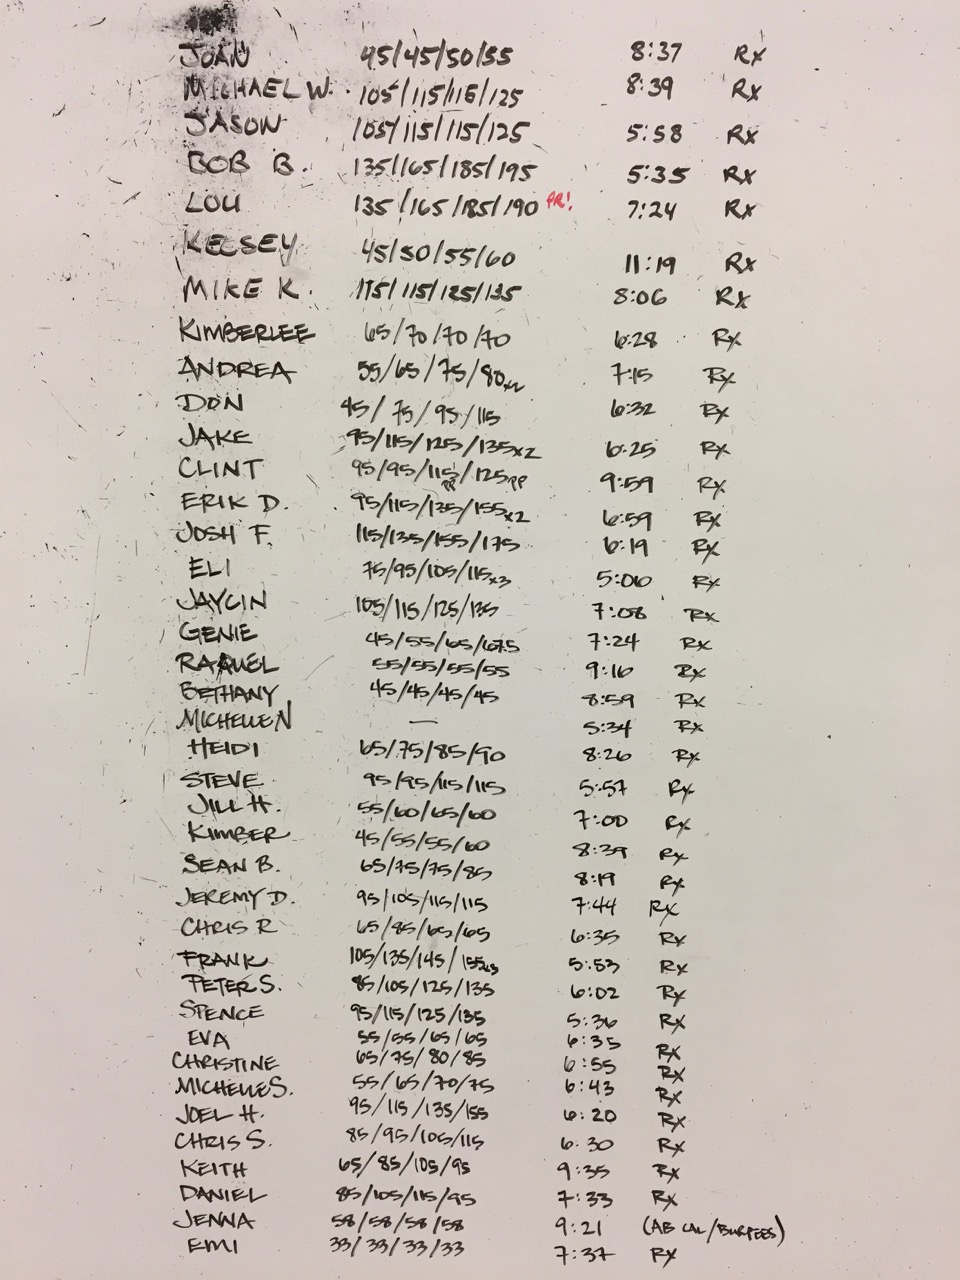 JOAN 45/45/50/55 8:37 Rx
MICHAEL W. 105/115/115/125 8:39 Rx
JASON 105/115/115/125 5:58 Rx
BOB B. 135/165/185/195 5:35 Rx
LOU 135/165/185/190 PR! 7:24 Rx
KELSEY 45/50/55/60 11:19 Rx
MIKE K. 115/115/125/135 8:06 Rx
KIMBERLEE 65/70/70/70 6:28 Rx
ANDREA 55/65/75/80x2 7:15 Rx
DON 45/75/95/115 6:32 Rx
JAKE 95/115/125/135x2 6:25 Rx
CLINT 95/95/115PP/125PP 9:59 Rx
ERIK D. 95/115/135/155x2 6:59 Rx
JOSH F. 115/135/155/175 6:19 Rx
ELI 75/95/105/115x3 5:06 Rx
JAYCIN 105/115/125/135 7:08 Rx
GENIE 45/55/65/67.5 7:24 Rx
RAQUEL 55/55/55/55 9:16 Rx
BETHANY 45/45/45/45 8:59 Rx
MICHELLE N — 5:34 Rx
HEIDI 65/75/85/90 8:26 Rx
STEVE 95/95/115/115 5:57 Rx
JILL H. 55/60/65/60 7:00 Rx
KIMBER 45/55/55/60 8:39 Rx
SEAN B. 65/75/75/85 8:19 Rx
JEREMY D. 95/105/115/115 7:44 Rx
CHRIS R 65/85/65/65 6:35 Rx
FRANK 105/135/145/155x3 5:53 Rx
PETER S. 85/105/125/135 6:02 Rx
SPENCE 95/115/125/135 5:36 Rx
EVA 55/55/65/65 6:35 Rx
CHRISTINE 65/75/80/85 6:55 Rx
MICHELLE S. 55/65/70/75 6:43 Rx
JOEL H. 95/115/135/155 6:20 Rx
CHRIS S. 85/95/105/115 6:30 Rx
KEITH 65/85/105/95 9:35 Rx
DANIEL 85/105/115/95 7:33 Rx
JENNA 58/58/58/58 9:21 (AB CAL/BURPEES)
EMI 33/33/33/33 7:37 Rx